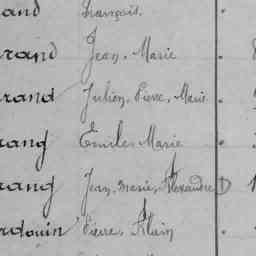 and François.
rand Jean, Marie
rand Julien, Pierre, Marie
rang Emile, Marie
rang Jean, Marie, Alexandre D
rdouin Pierre, Alain